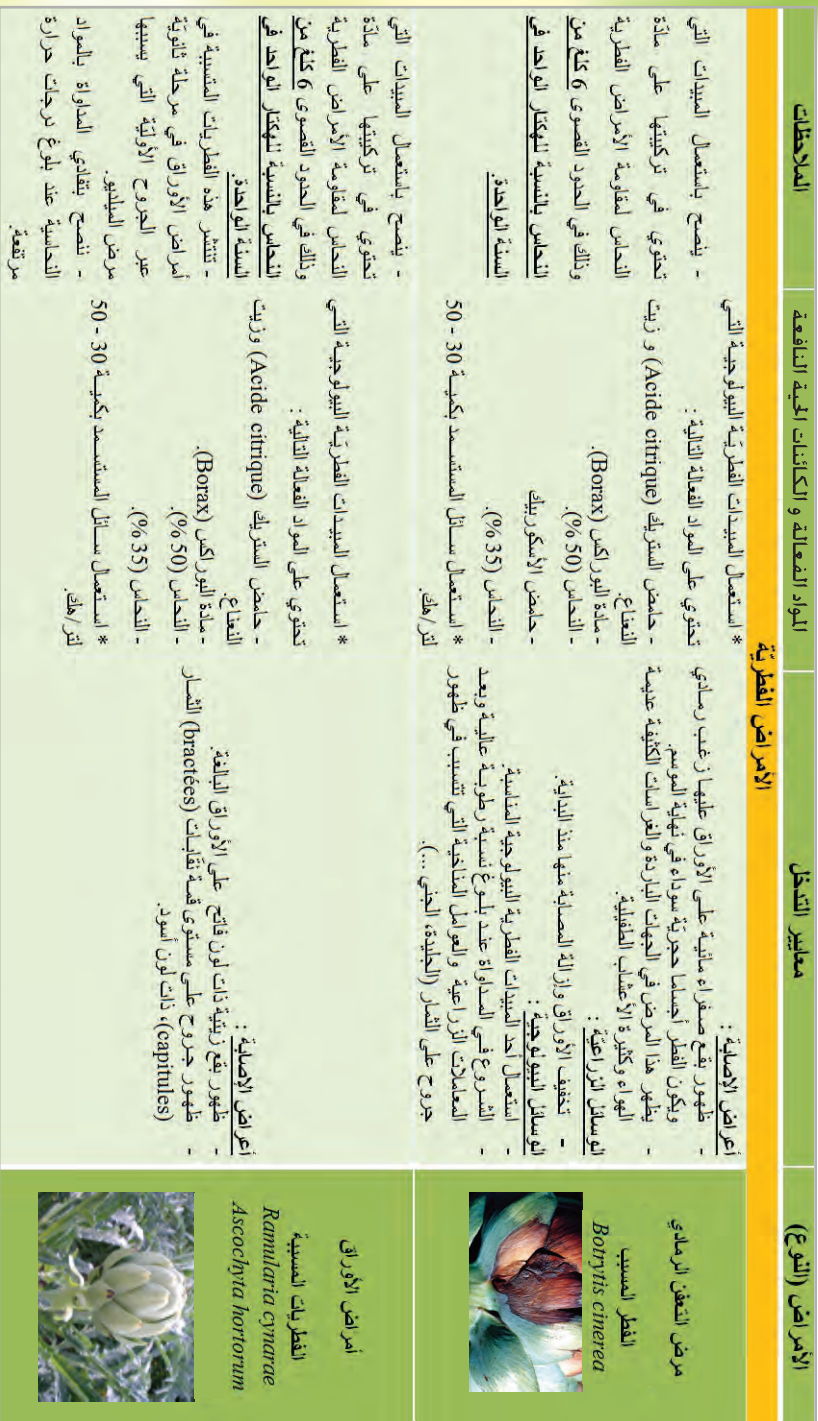 الأمراض (النوع)
معايير التدخل
المواد الفعالة و الكائنات الحية النافعة
الملاحظات
الأمراض الفطريّة
مرض التعفن الرمادي
الفطر المسبب
Botrytis cinerea
أعراض الإصابة :
- ظهور بقع صفراء مائية على الأوراق عليها زغب رمادي
ويكون الفطر أجساما حجريّة سوداء في نهاية الموسم.
- يظهر هذا المرض في الجهات الباردة والغراسات الكثيفة عديمة
الهواء وكثيرة الأعشاب الطفيلية.
الوسائل الزراعيّة :
- تخفيف الأوراق وإزالة المصابة منها منذ البداية.
الوسائل البيولوجية :
- استعمال أحد المبيدات الفطرية البيولوجية المناسبة.
- الشروع في المداواة عند بلوغ نسبة رطوبة عالية وبعد
المعاملات الزراعية والعوامل المناخية التي تتسبب في ظهور
جروح على الثمار (الجليدة، الجني ...).
* استعمال المبيدات الفطريّة البيولوجية التي
تحتوي على المواد الفعالة التالية :
- حامض الستريك (Acide citrique) و زيت
النعناع.
- مادة البوراكس (Borax).
- النحاس (50 %).
- حامض الأسكوربيك
- النحاس (35 %).
* استعمال سائل المستسمد بكمية 30 - 50
لتر/هك.
- ينصح باستعمال المبيدات التي
تحتوي في تركيبتها على مادّة
النحاس لمقاومة الأمراض الفطرية
وذلك في الحدود القصوى 6 كلغ من
النحاس بالنسبة للهكتار الواحد في
السنة الواحدة.
أمراض الأوراق
الفطريات المسببة
Ramularia cynarae
Ascochyta hortorum
أعراض الإصابة :
- ظهور بقع زيتية ذات لون فاتح على الأوراق البالغة.
- ظهور جروح على مستوى قمة نقابات (bractées) الثمار
(capitules)، ذات لون أسود.
* استعمال المبيدات الفطريّة البيولوجية التي
تحتوي على المواد الفعالة التالية :
- حامض الستريك (Acide citrique) وزيت
النعناع.
- مادة البوراكس (Borax).
- النحاس (50 %).
- النحاس (35 %).
* استعمال سائل المستسمد بكمية 30 - 50
لتر/هك.
- ينصح باستعمال المبيدات التي
تحتوي في تركيبتها على مادّة
النحاس لمقاومة الأمراض الفطرية
وذلك في الحدود القصوى 6 كلغ من
النحاس بالنسبة للهكتار الواحد في
السنة الواحدة.
- تنتشر هذه الفطريات المتسببة في
أمراض الأوراق في مرحلة ثانويّة
عبر الجروح الأوليّة التي يسببها
مرض الميلديو.
- ننصح بتفادي المداواة بالمواد
النحاسية عند بلوغ درجات حرارة
مرتفعة.